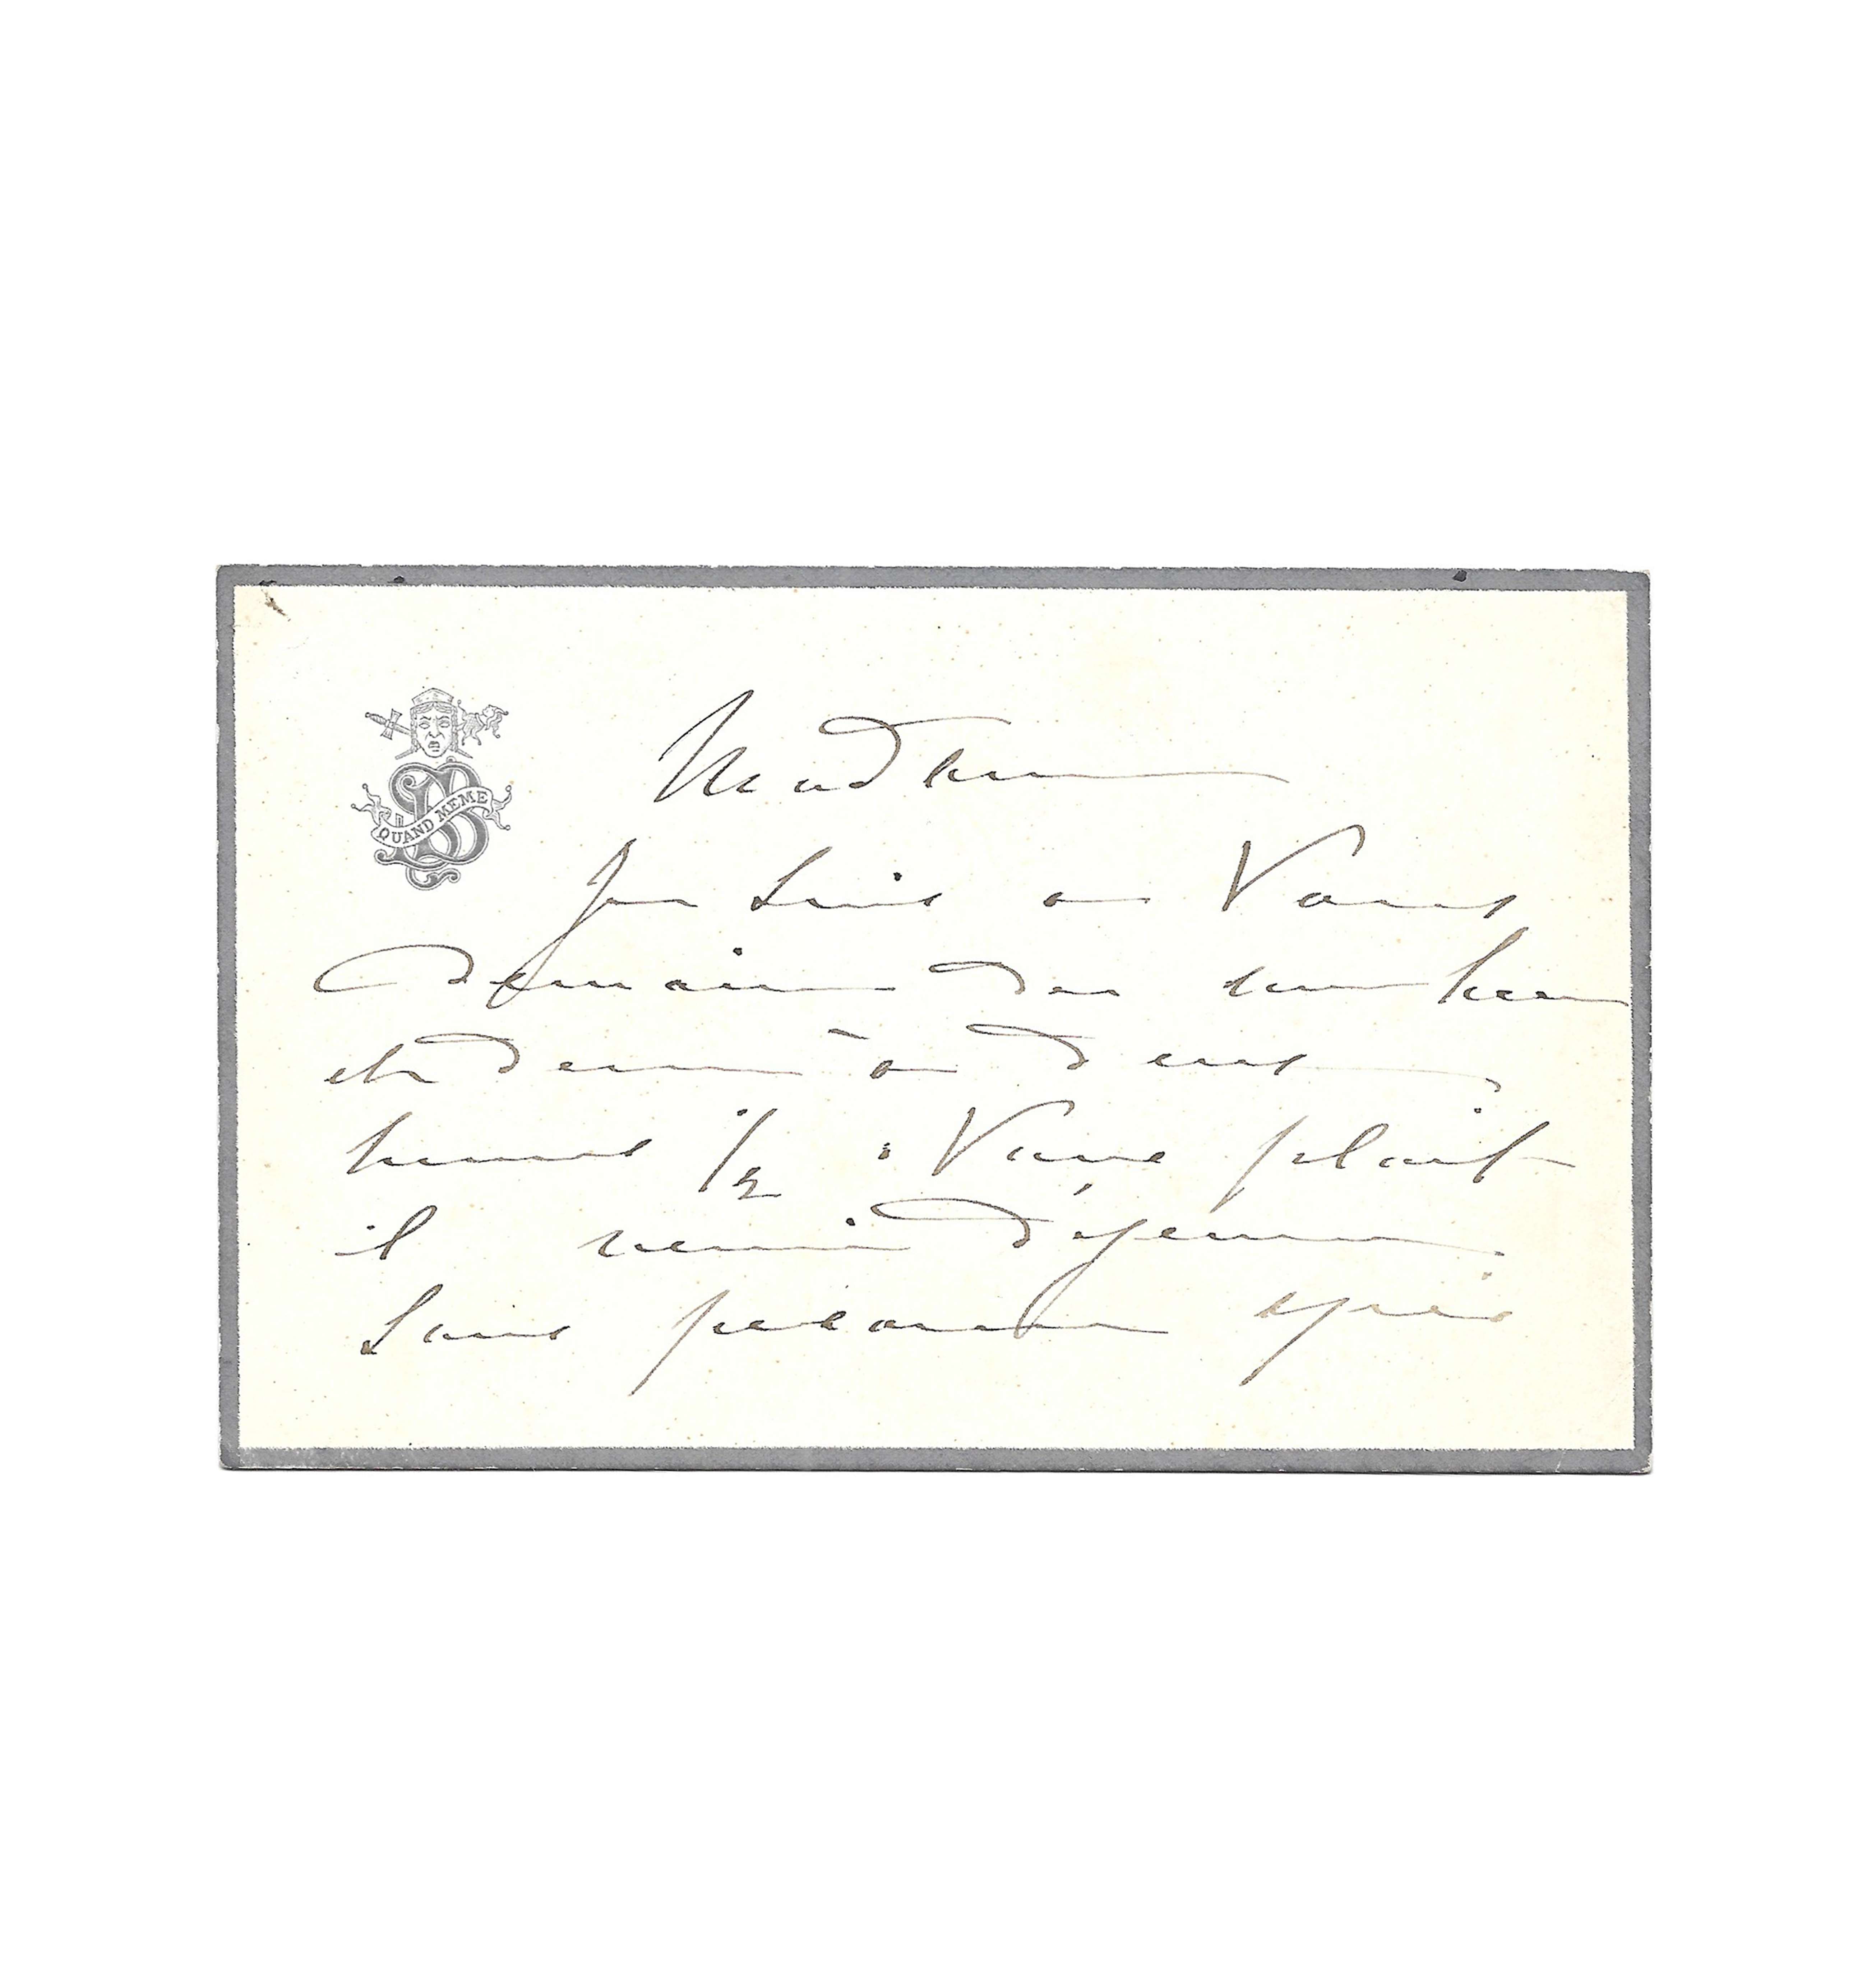 QUAND MEME
Madame
Je suis a Vous
demain de une heure
et demie à deux
heures 1/2. Vous plait
il venir déjeuner
Sans